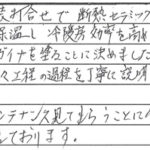 装打合せで断熱セラミック
保温し 冷暖房効率を高め
ガイナを塗ることに決めました
々工程の過程を丁寧に説明
ンテナンス見てもらうことに
しております。